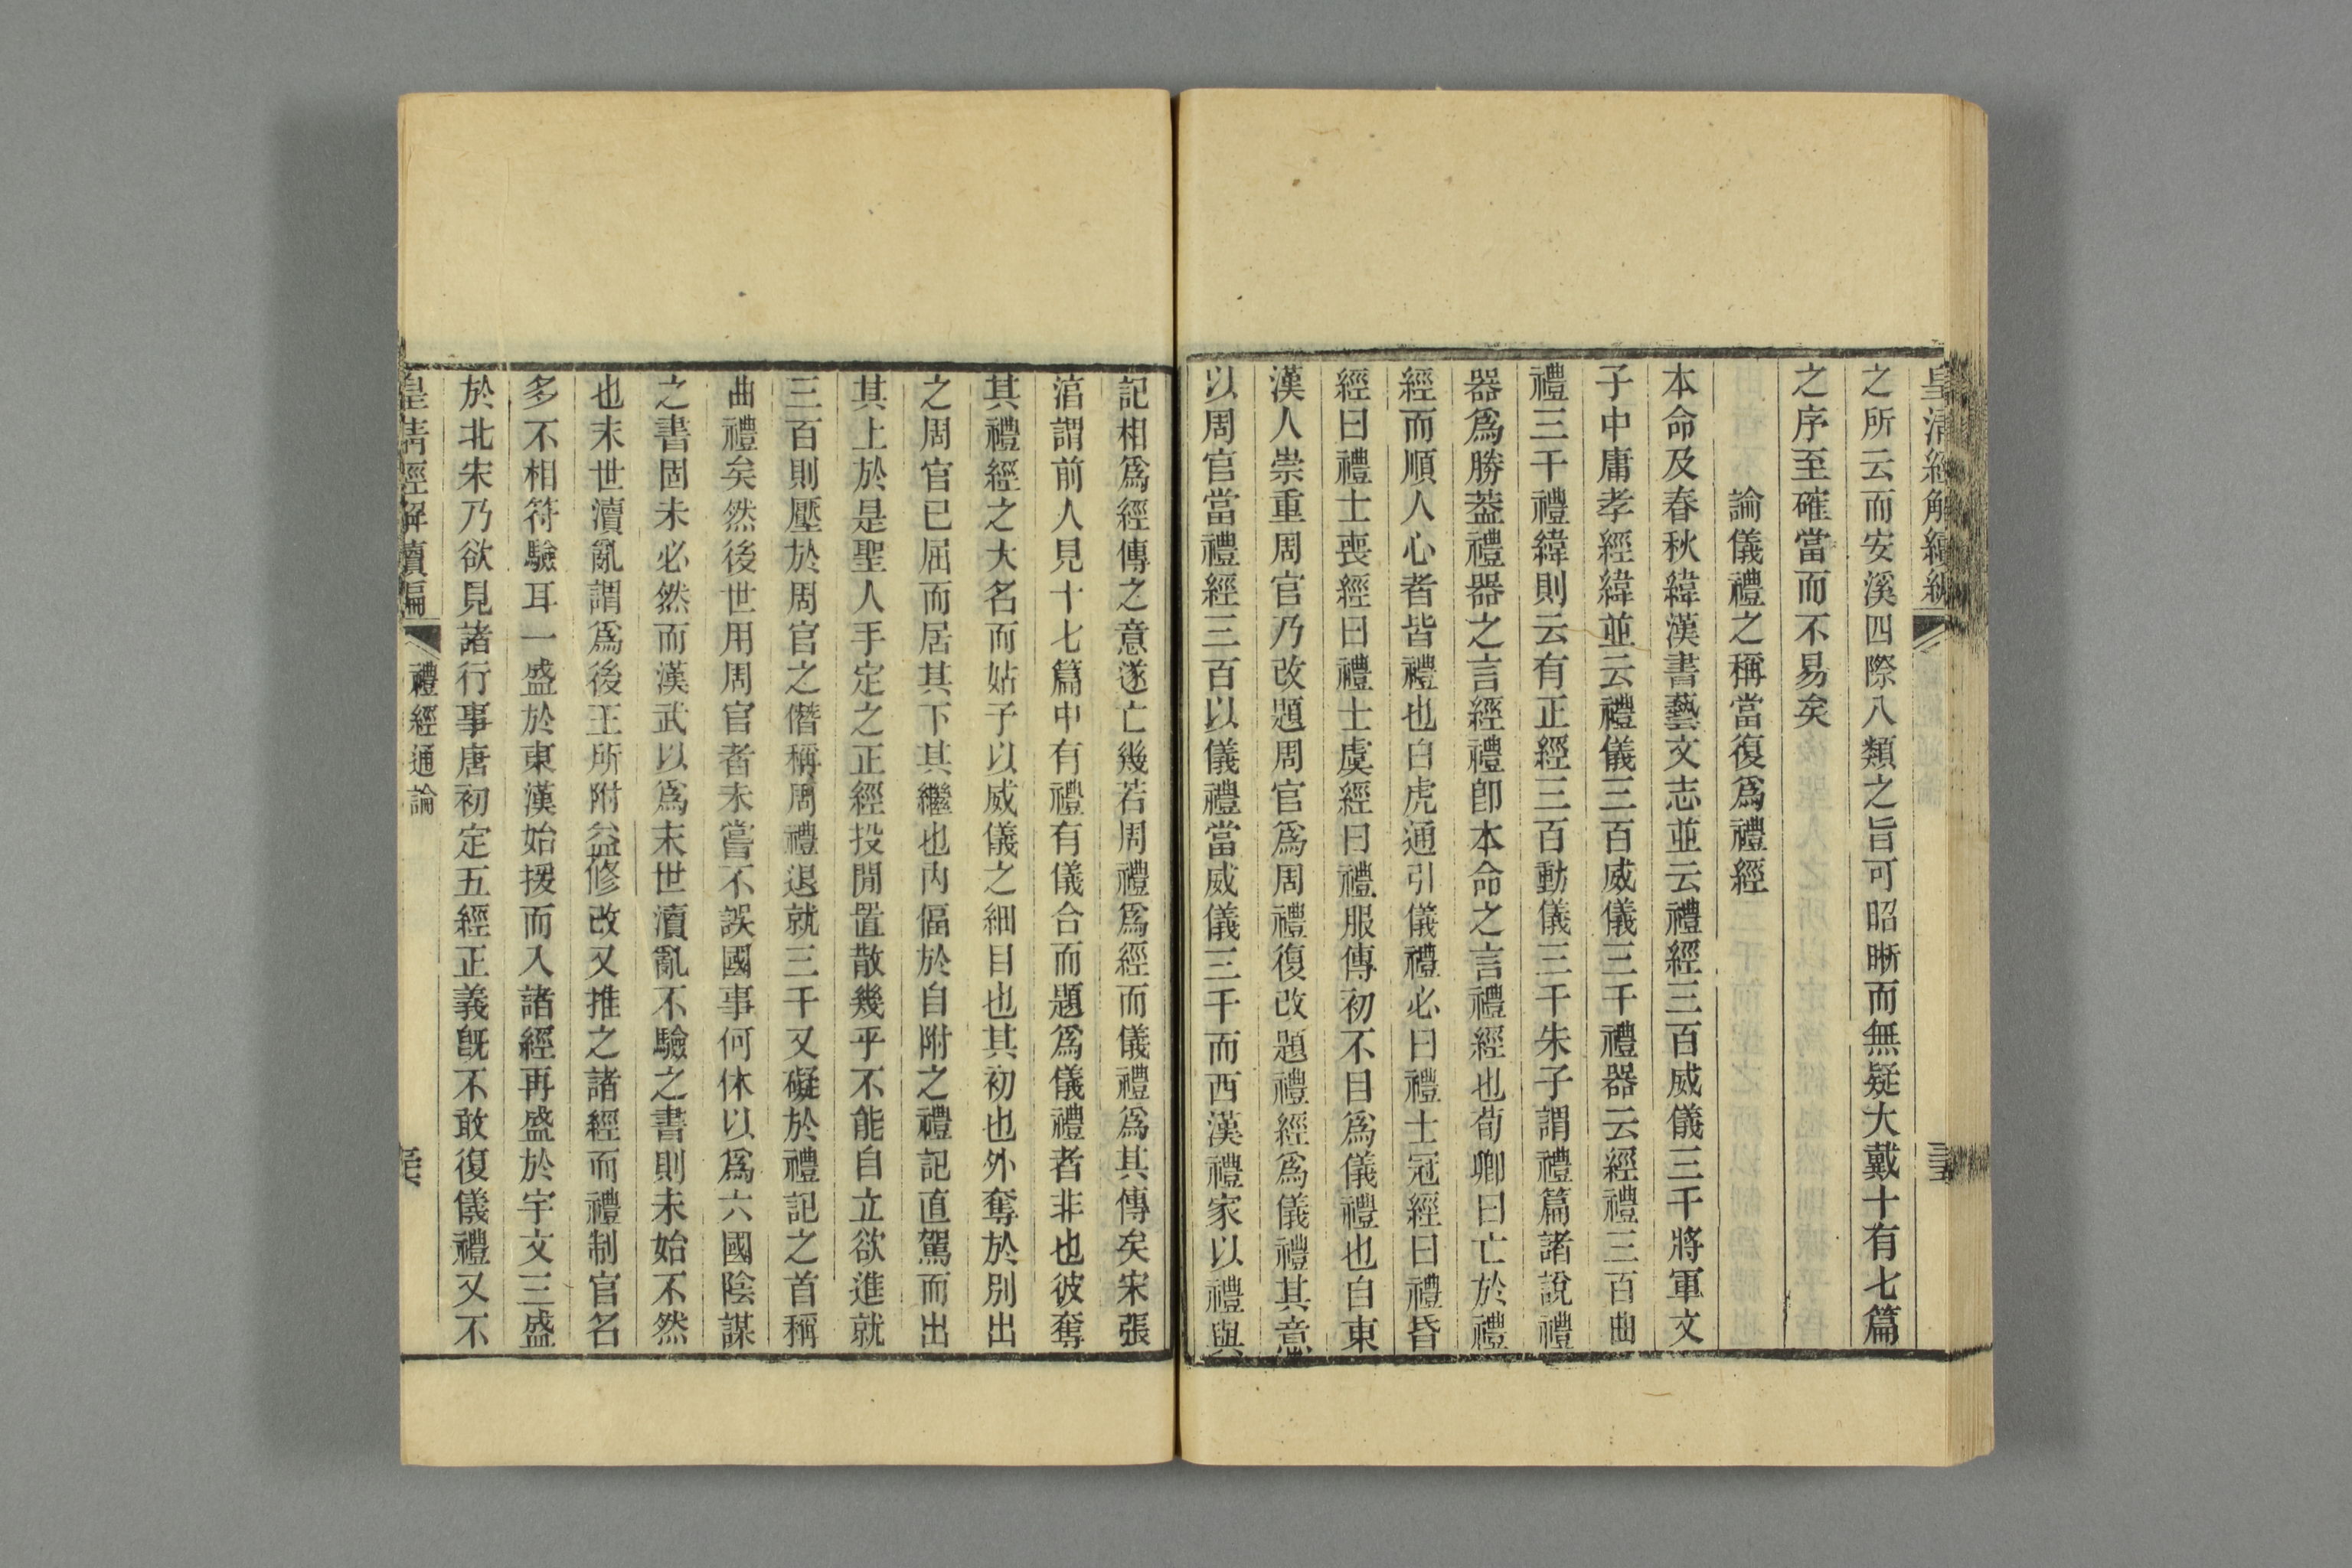 之所云而安溪四際八類之旨可昭晰而無疑大戴十有七篇
之序至確當而不易矣
論儀禮之稱當復爲禮經
本命及春秋緯漢書藝文志並云禮經三百威儀三千將軍文
子中庸孝經緯並云禮儀三百威儀三千禮器云經禮三百曲
禮三千禮緯則云有正經三百動儀三千朱子謂禮篇諸說禮
器爲勝葢禮器之言經禮卽本命之言禮經也荀卿曰亡於禮
經而順人心者皆禮也白虎通引儀禮必曰禮士冠經曰禮昏
經曰禮士喪經曰禮士虞經曰禮服傳初不目爲儀禮也自東
漢人崇重周官乃改題周官爲周禮復改題禮經爲儀禮其意
以周官當禮經三百以儀禮當威儀三千而西漢禮家以禮與
記相爲經傳之意遂亡幾若周禮爲經而儀禮爲其傳矣宋張
淯謂前人見十七篇中有禮有儀合而題爲儀禮者非也彼奪
其禮經之大名而姑予以威儀之細目也其初也外奪於別出
之周官已屈而居其下其繼也內偪於自附之禮記直駕而出
其上於是聖人手定之正經投閒置散幾乎不能自立欲進就
三百則壓於周官之僭稱周禮退就三千又礙於禮記之首稱
曲禮矣然後世用周官者未嘗不誤國事何休以爲六國陰謀
之書固未必然而漢武以爲末世瀆亂不驗之書則未始不然
也末世瀆亂謂爲後王所附益修改又推之諸經而禮制官名
多不相符驗耳一盛於東漢始援而入諸經再盛於宇文三盛
於北宋乃欲見諸行事唐初定五經正義旣不敢復儀禮又不
皇清經解續編
禮經通論